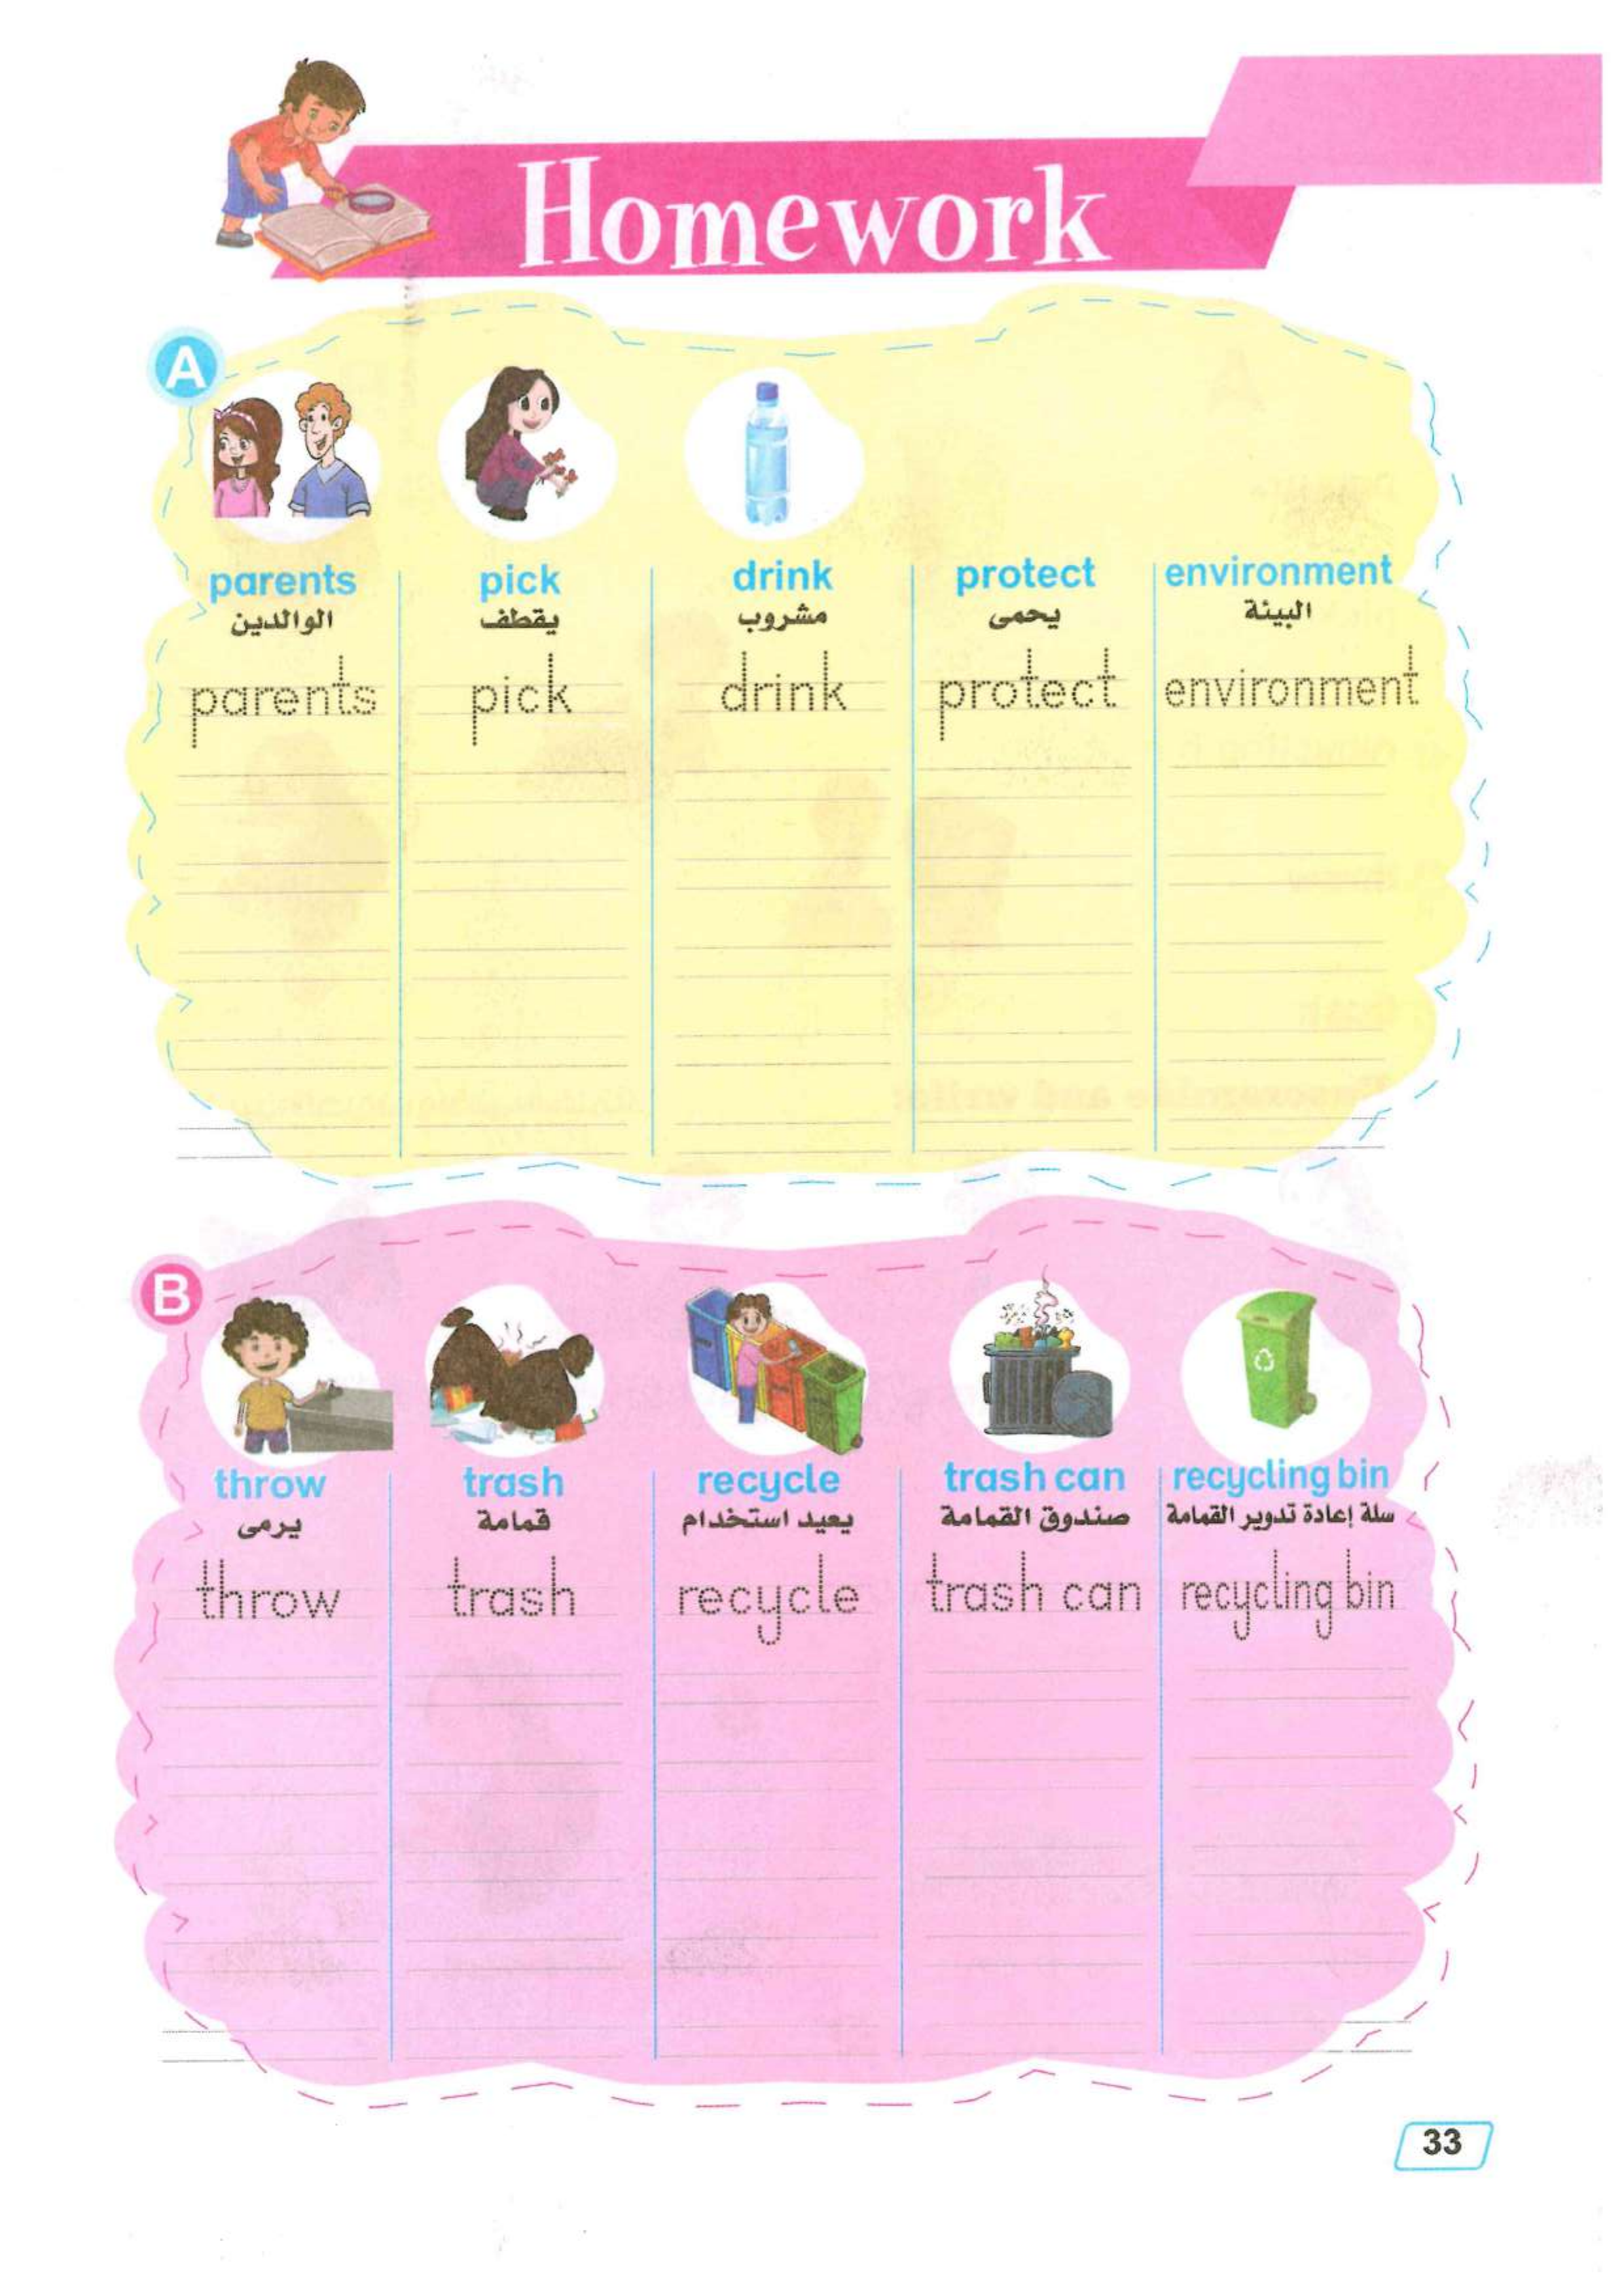 Homework
A
parents pick drink protect environment
الوالدين يقطف مشروب يحمى البيئة
parents pick drink protect environment
B
throw trash recycle trash can recycling bin
يرمى قمامة يعيد استخدام صندوق القمامة سلة إعادة تدوير القمامة
throw trash recycle trash can recycling bin
33